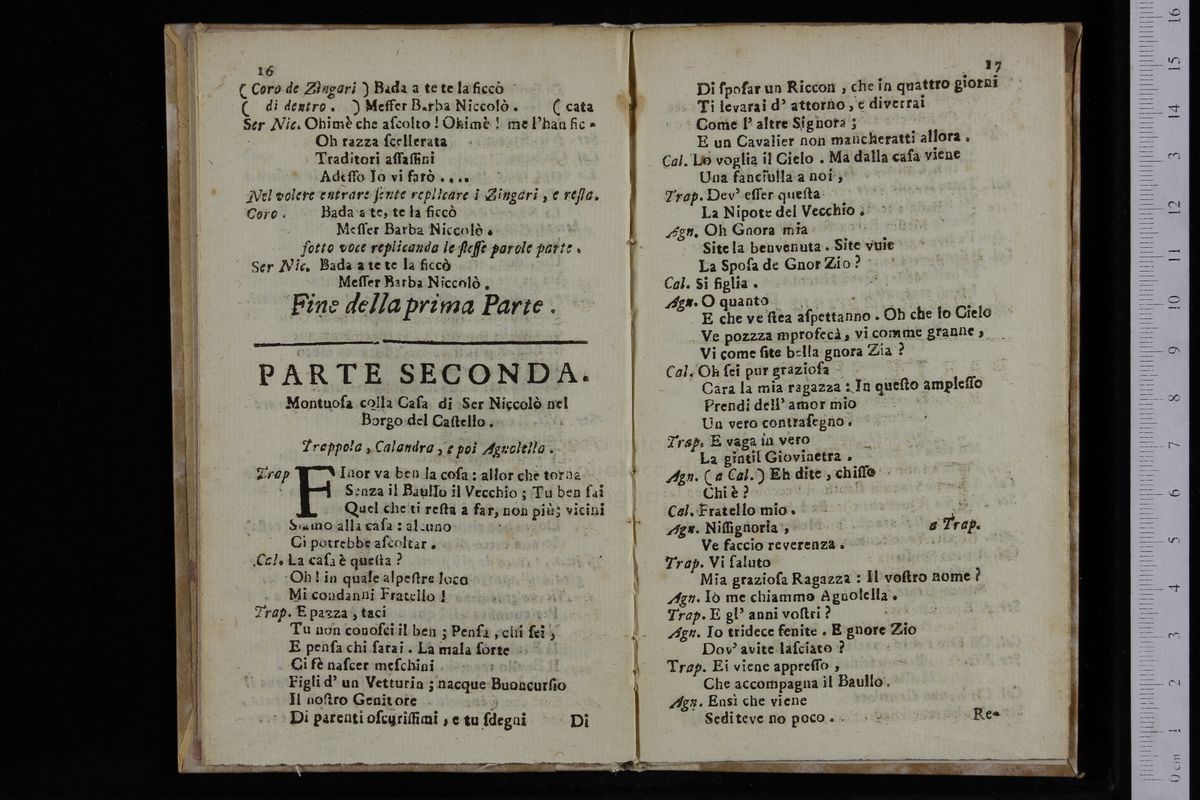 16
( Coro de Zingari ) Bada a te te la ficcò
( di dentro . ) Messer Barba Niccolò . ( cata
Ser Nic. Ohimè che ascolto ! Ohimè ! me l'han fic-
Oh razza scellerata
Traditori assassini
Adesso Io vi farò ....
Nel volere entrare sente replicare i Zingari , e resta.
Coro . Bada a te, te la ficcò
Messer Barba Niccolò .
sotto voce replicando le stesse parole parte .
Ser Nic. Bada a te te la ficcò
Messer Barba Niccolò .
Fine della prima Parte .
PARTE SECONDA.
Montuosa colla Casa di Ser Niccolò nel
Borgo del Castello .
Trappola , Calandra , e poi Agnolella .
Trap FInor va ben la cosa : allor che torna
Senza il Baullo il Vecchio ; Tu ben sai
Quel che ti resta a far, non più; vicini
Siamo alla casa : alcuno
Ci potrebbe ascoltar .
Cal. La casa è questa ?
Oh ! in quale alpestre loco
Mi condanni Fratello !
Trap. E pazza , taci
Tu non conosci il ben ; Pensa , chi sei ,
E pensa chi sarai . La mala sorte
Ci fè nascer meschini
Figli d' un Vetturin ; nacque Buoncursio
Il nostro Genitore
Di parenti oscurissimi , e tu sdegni Di
17
Di sposar un Riccon , che in quattro giorni
Ti levarai d' attorno , e diverrai
Come l' altre Signora ;
E un Cavalier non mancheratti allora .
Cal. Lo voglia il Cielo . Ma dalla casa viene
Una fanciulla a noi ,
Trap. Dev' esser questa
La Nipote del Vecchio .
Agn. Oh Gnora mia
Site la benvenuta . Site vuie
La Sposa de Gnor Zio ?
Cal. Si figlia .
Agn. O quanto
E che ve stea aspettanno . Oh che lo Cielo
Ve pozzza mprofecà , vi comme granne ,
Vi come site bella gnora Zia ?
Cal. Oh sei pur graziosa
Cara la mia ragazza : In questo amplesso
Prendi dell' amor mio
Un vero contrasegno .
Trap. E vaga in vero
La gintil Giovinetra .
Agn. ( a Cal. ) Eh dite , chisso
Chi è ?
Cal. Fratello mio .
Agn. Nissignoria , a Trap.
Ve faccio reverenza .
Trap. Vi saluto
Mia graziosa Ragazza : Il vostro nome ?
Agn. Iò me chiammo Agnolella .
Trap. E gl' anni vostri ?
Agn. Io tridece fenite . E gnore Zio
Dov' avite lasciato ?
Trap. Ei viene appresso ,
Che accompagna il Baullo .
Agn. Ensì che viene
Sediteve no poco . Re-
16
15
14
13
12
11
10
9
8
7
6
5
4
3
2
1
0 cm